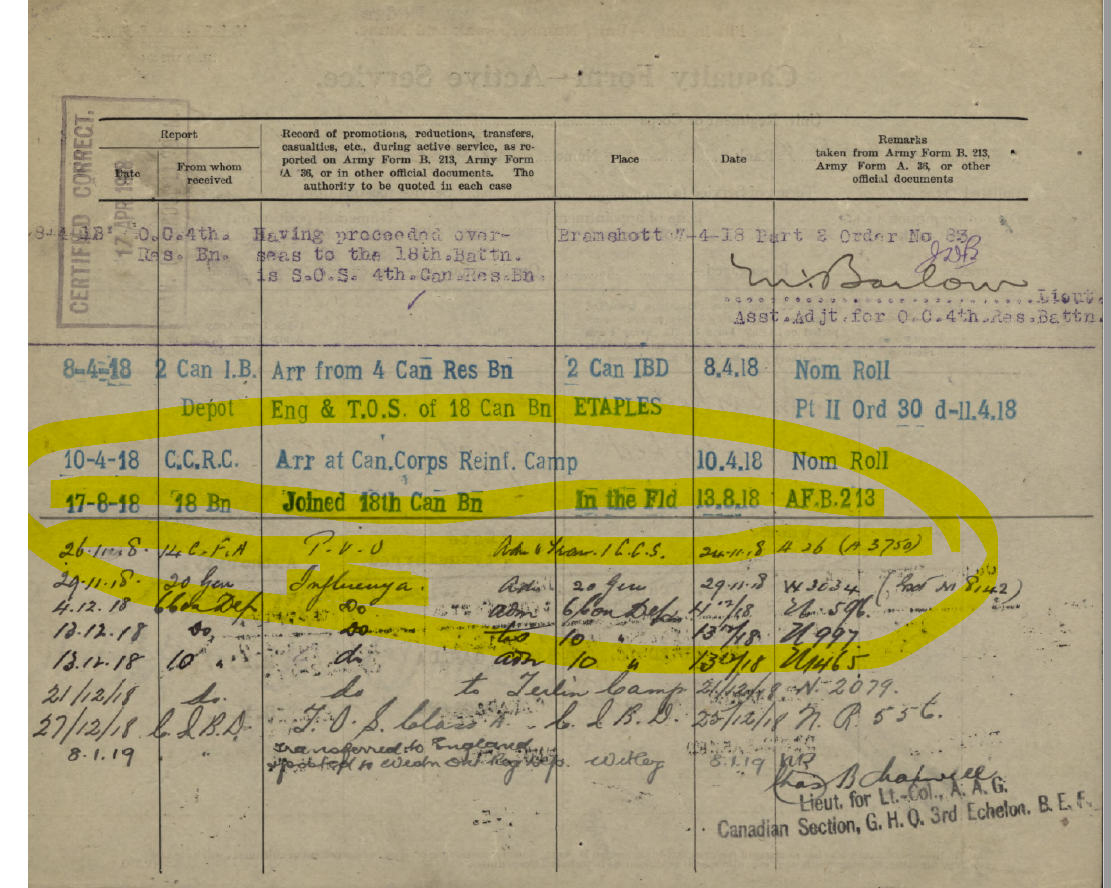 Casualty Form—Active Service.
CERTIFIED CORRECT.
17 APR 1918
Report
Date
From whom received
Record of promotions, reductions, transfers, casualties, etc., during active service, as reported on Army Form B. 213, Army Form A 36, or in other official documents. The authority to be quoted in each case
Place
Date
Remarks taken from Army Form B. 213, Army Form A. 36, or other official documents
8-4-18 O.C.4th. Having proceeded over- Bramshott 7-4-18 Part 2 Order No 83
Res. Bn. seas to the 18th.Battn.
is S.O.S. 4th.Can.Res.Bn.
W. Barlow
Lieut.
Asst.Adjt.for O.C.4th.Res.Battn.
8-4-18 2 Can I.B. Arr from 4 Can Res Bn 2 Can IBD 8.4.18 Nom Roll
Depot Eng & T.O.S. of 18 Can Bn ETAPLES Pt II Ord 30 d-11.4.18
10-4-18 C.C.R.C. Arr at Can.Corps Reinf. Camp 10.4.18 Nom Roll
17-8-18 18 Bn Joined 18th Can Bn In the Fld 13.8.18 AF.B.213
26.11.8. 14 C.F.A P.U.O Adm & Tran. 1 C.C.S. 24.11.8 A 36 (A 3750)
29.11.18. 20 Gen Influenza. Adm 20 Gen 29.11.8 W 3034
4.12.18 6 Con Dep do adm 6 Con Dep 4 12/18 596
13.12.18 do, do 10 " 13 12/18 N 997
13.12.18 10 " do adm 10 " 13 12/18 N1465
21/12/18 do. do to Terlin Camp 21/12/18 N 2079.
27/12/18 C I B.D. T.O.S. Class A C I B.D. 25/12/18 N.R. 556.
8.1.19 " Transferred to England 8.1.19 NR
posted to Westn Ont Reg Dep. Witley
Chas B Chapwell
Lieut. for Lt.-Col., A. A. G.
Canadian Section, G. H. Q. 3rd Echelon. B. E. F.